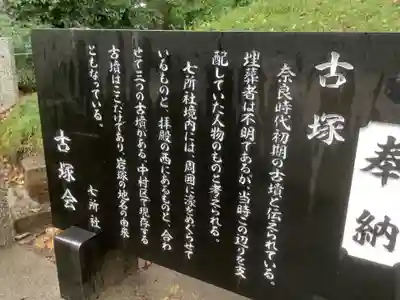 古塚
奈良時代初期の古墳と伝えられている。
埋葬者は不明であるが、当時この辺りを支
配していた人物のものと考えられる。
七所社境内には、周囲に濠をめぐらせて
いるものと、拝殿の西にあるものと、合わ
せて三つの古墳がある。中村区で現存する
古墳はここだけであり、岩塚の地名の由来
ともなっている。
七所社
古塚会
奉納